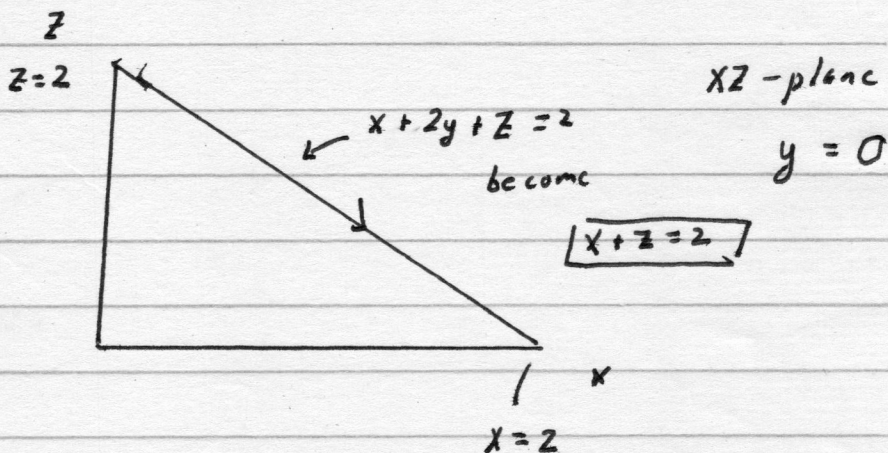 Z
Z=2
XZ-plane
x + 2y + Z = 2
y = 0
become
x + z = 2
x
x = 2